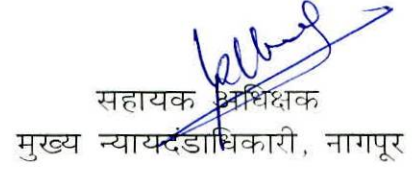 सहायक अधिक्षक
मुख्य न्यायदंडाधिकारी, नागपूर